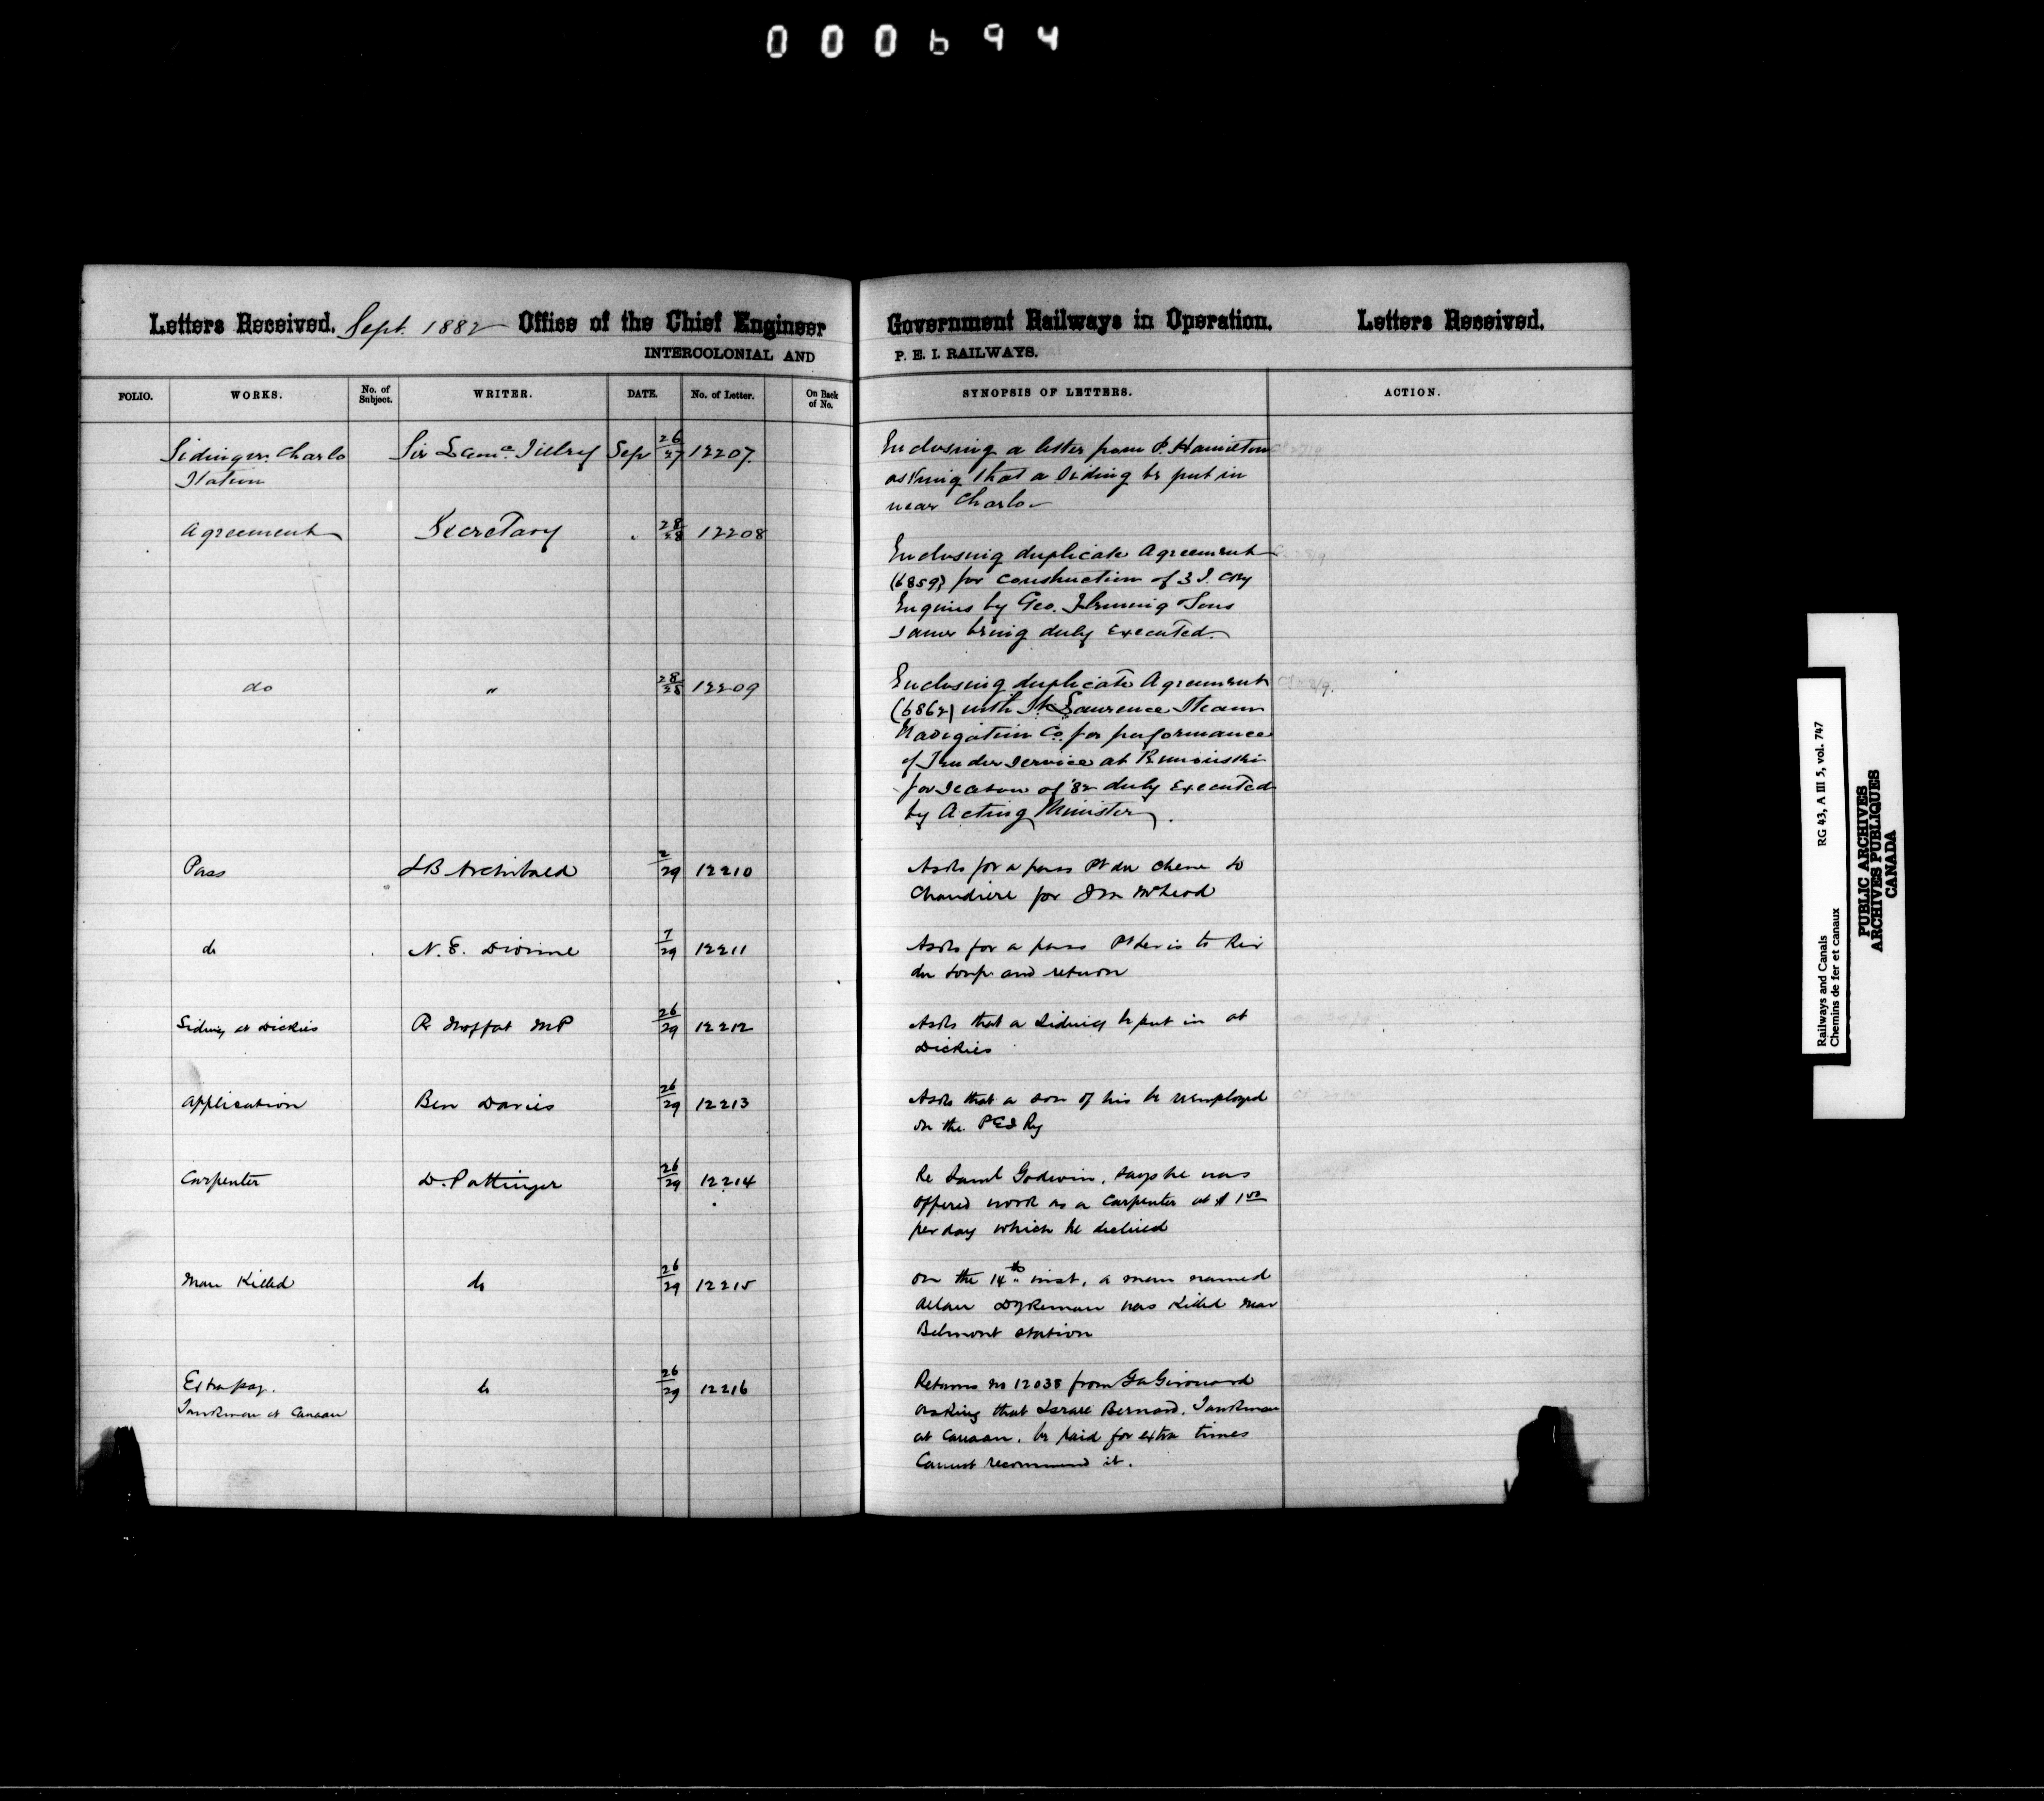 000694
Letters Received. Sept. 1882 Office of the Chief Engineer
INTERCOLONIAL AND
Government Railways in Operation. Letters Received.
P. E. I. RAILWAYS.
FOLIO. WORKS. No. of Subject. WRITER. DATE. No. of Letter. On Back of No.
SYNOPSIS OF LETTERS. ACTION.
Siding nr. Charlo Sir Tilley Sep 26/27 12207.
Station
Enclosing a letter from P. Hamilton
asking that a Siding be put in
near Charlo
Agreement Secretary 28/28 12208
Enclosing duplicate Agreement
(6859) for construction of 3 I. C Ry
Engines by Geo. Fleming Sons
same being duly Executed.
do " 28/28 12209
Enclosing duplicate Agreement
(6862) with St Lawrence Steam
Navigation Co. for performance
of Tender Service at Rimouski
for Season of '82 duly Executed
by Acting Minister.
Pass Archibald 2/29 12210
Asks for a pass Pt du Chene to
Chaudiere for McLeod
do N. E. Dionne 7/29 12211
Asks for a pass Pt Levis to Riv
du Loup and return
Siding at Dickies R Moffat MP 26/29 12212
Asks that a siding be put in at
Dickies
Application Ben Davies 26/29 12213
Asks that a son of his be reemployed
on the P E I Ry
Carpenter D. Pottinger 26/29 12214
Re Saml Godwin, says he was
offered work as a carpenter at $1
per day which he declined
Man Killed do 26/29 12215
On the 14th inst, a man named
Allan Dykeman was killed near
Belmont station
Extra pay. do 26/29 12216
Tankman at Canaan
Returns no 12038 from Girouard
asking that Israel Bernard, Tankman
at Canaan, be paid for extra times
Cannot recommend it.
Railways and Canals RG 43, A III 5, vol. 747
Chemins de fer et canaux
PUBLIC ARCHIVES
ARCHIVES PUBLIQUES
CANADA